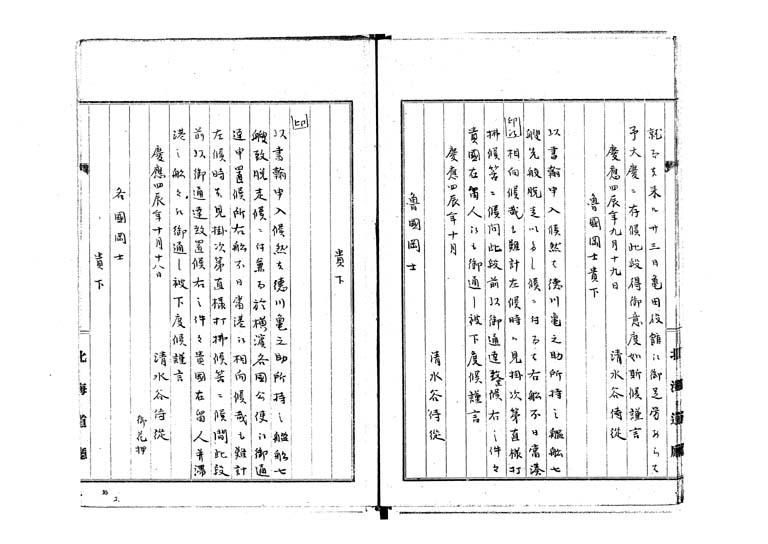 就而者来ル廿三日亀田役館江御足労あらて
予大慶ニ存候此段得御意度如斯候謹言
慶應四辰年九月十九日
清水谷侍従
魯國岡士貴下
以書翰申入候然者徳川亀之助所持之艦船七
艘先般脱走いたし候ニ付而者右船不日當湊
印江相向候哉も難計左候時ハ見掛次第直様打
拂候筈ニ候間此段前以御通達致候右之件々
貴國在留人江も御通し被下度候謹言
慶應四辰年十月
清水谷侍従
魯國岡士
貴下
印
以書翰申入候然者徳川亀之助所持之艦船七
艘致脱走候ニ付兼而於横濱各国公使江御通
達申置候所右船不日當港江相向候哉も難計
左候時者見掛次第直様打拂候筈ニ候間此段
前以御通達致置候右之件々貴國在留人并滞
港之船々江御通し被下度候謹言
慶應四辰年十月十八日
清水谷侍従
御花押
各國岡士
貴下
北海道廳
北海道廳